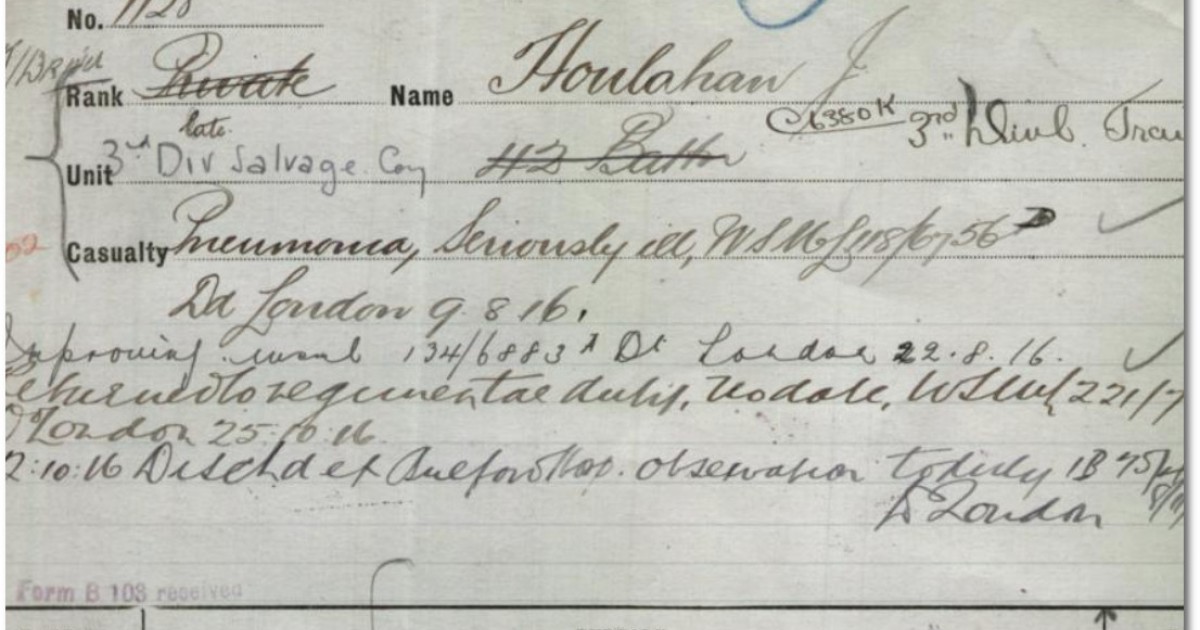 No. 1128
Rank Private Name Houlahan J
C6380K 3rd Divl.
late
Unit 3rd Div Salvage Coy 42 Battn
Casualty Pneumonia, Seriously ill,
Dd London 9.8.16.
Improving 134/6883 Dd London 22.8.16.
Returned to regimental duty, no date,
London 25.10.16
2:10:16 Dischd ex Bulford Hos. observation to duty 1B
London
Form B 103 received